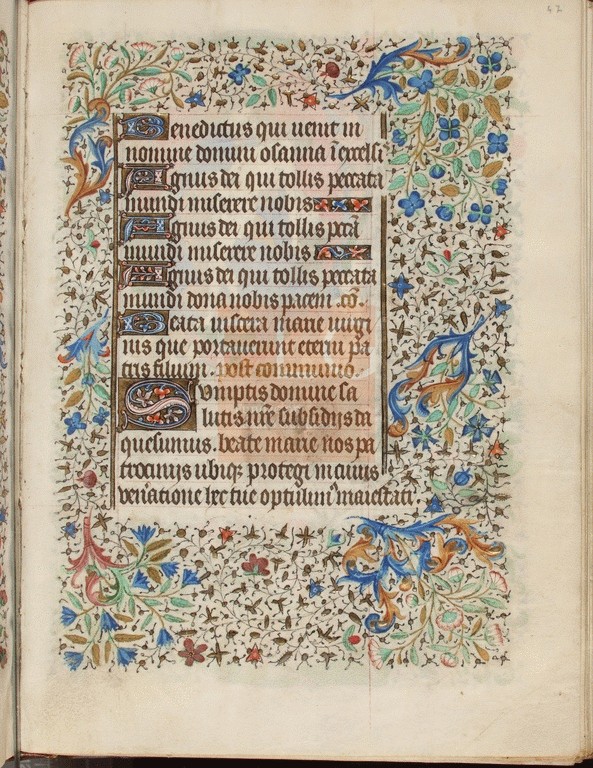 42
Benedictus qui uenit in
nomine domini osanna i excelsi
Agnus dei qui tollis peccata
mundi miserere nobis
Agnus dei qui tollis pecā
mundi miserere nobis
Agnus dei qui tollis peccata
mundi dona nobis pacem. cō.
Beata uiscera marie uirgi
nis que portauerunt eterni pa
tris filium. post communio.
Sumptis domine sa
lutis nr̄e subsidijs da
quesumus. beate marie nos pa
trocinijs ubiqꝫ protegi in cuius
ven̄atione hec tue optulim᷒ maiestati